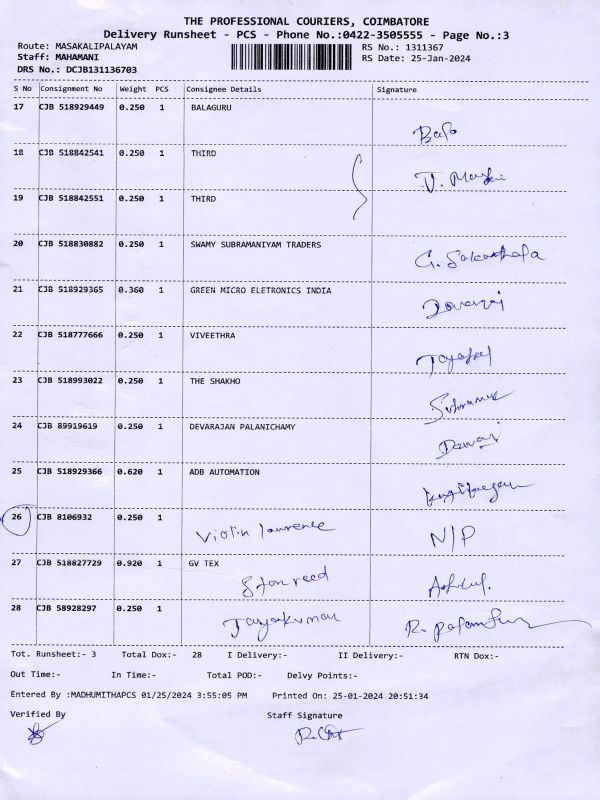 THE PROFESSIONAL COURIERS, COIMBATORE
Delivery Runsheet - PCS - Phone No.:0422-3505555 - Page No.:3
Route: MASAKALIPALAYAM RS No.: 1311367
Staff: MAHAMANI RS Date: 25-Jan-2024
DRS No.: DCJB131136703
S No Consignment No Weight PCS Consignee Details Signature
17 CJB 518929449 0.250 1 BALAGURU
18 CJB 518842541 0.250 1 THIRD
19 CJB 518842551 0.250 1 THIRD
20 CJB 518830882 0.250 1 SWAMY SUBRAMANIYAM TRADERS
21 CJB 518929365 0.360 1 GREEN MICRO ELETRONICS INDIA
22 CJB 518777666 0.250 1 VIVEETHRA
23 CJB 518993022 0.250 1 THE SHAKHO
24 CJB 89919619 0.250 1 DEVARAJAN PALANICHAMY
25 CJB 518929366 0.620 1 ADB AUTOMATION
26 CJB 8106932 0.250 1
Violin laurence N/P
27 CJB 518827729 0.920 1 GV TEX
28 CJB 58928297 0.250 1
Jayakumar
Tot. Runsheet:- 3 Total Dox:- 28 I Delivery:- II Delivery:- RTN Dox:-
Out Time:- In Time:- Total POD:- Delvy Points:-
Entered By :MADHUMITHAPCS 01/25/2024 3:55:05 PM Printed On: 25-01-2024 20:51:34
Verified By Staff Signature